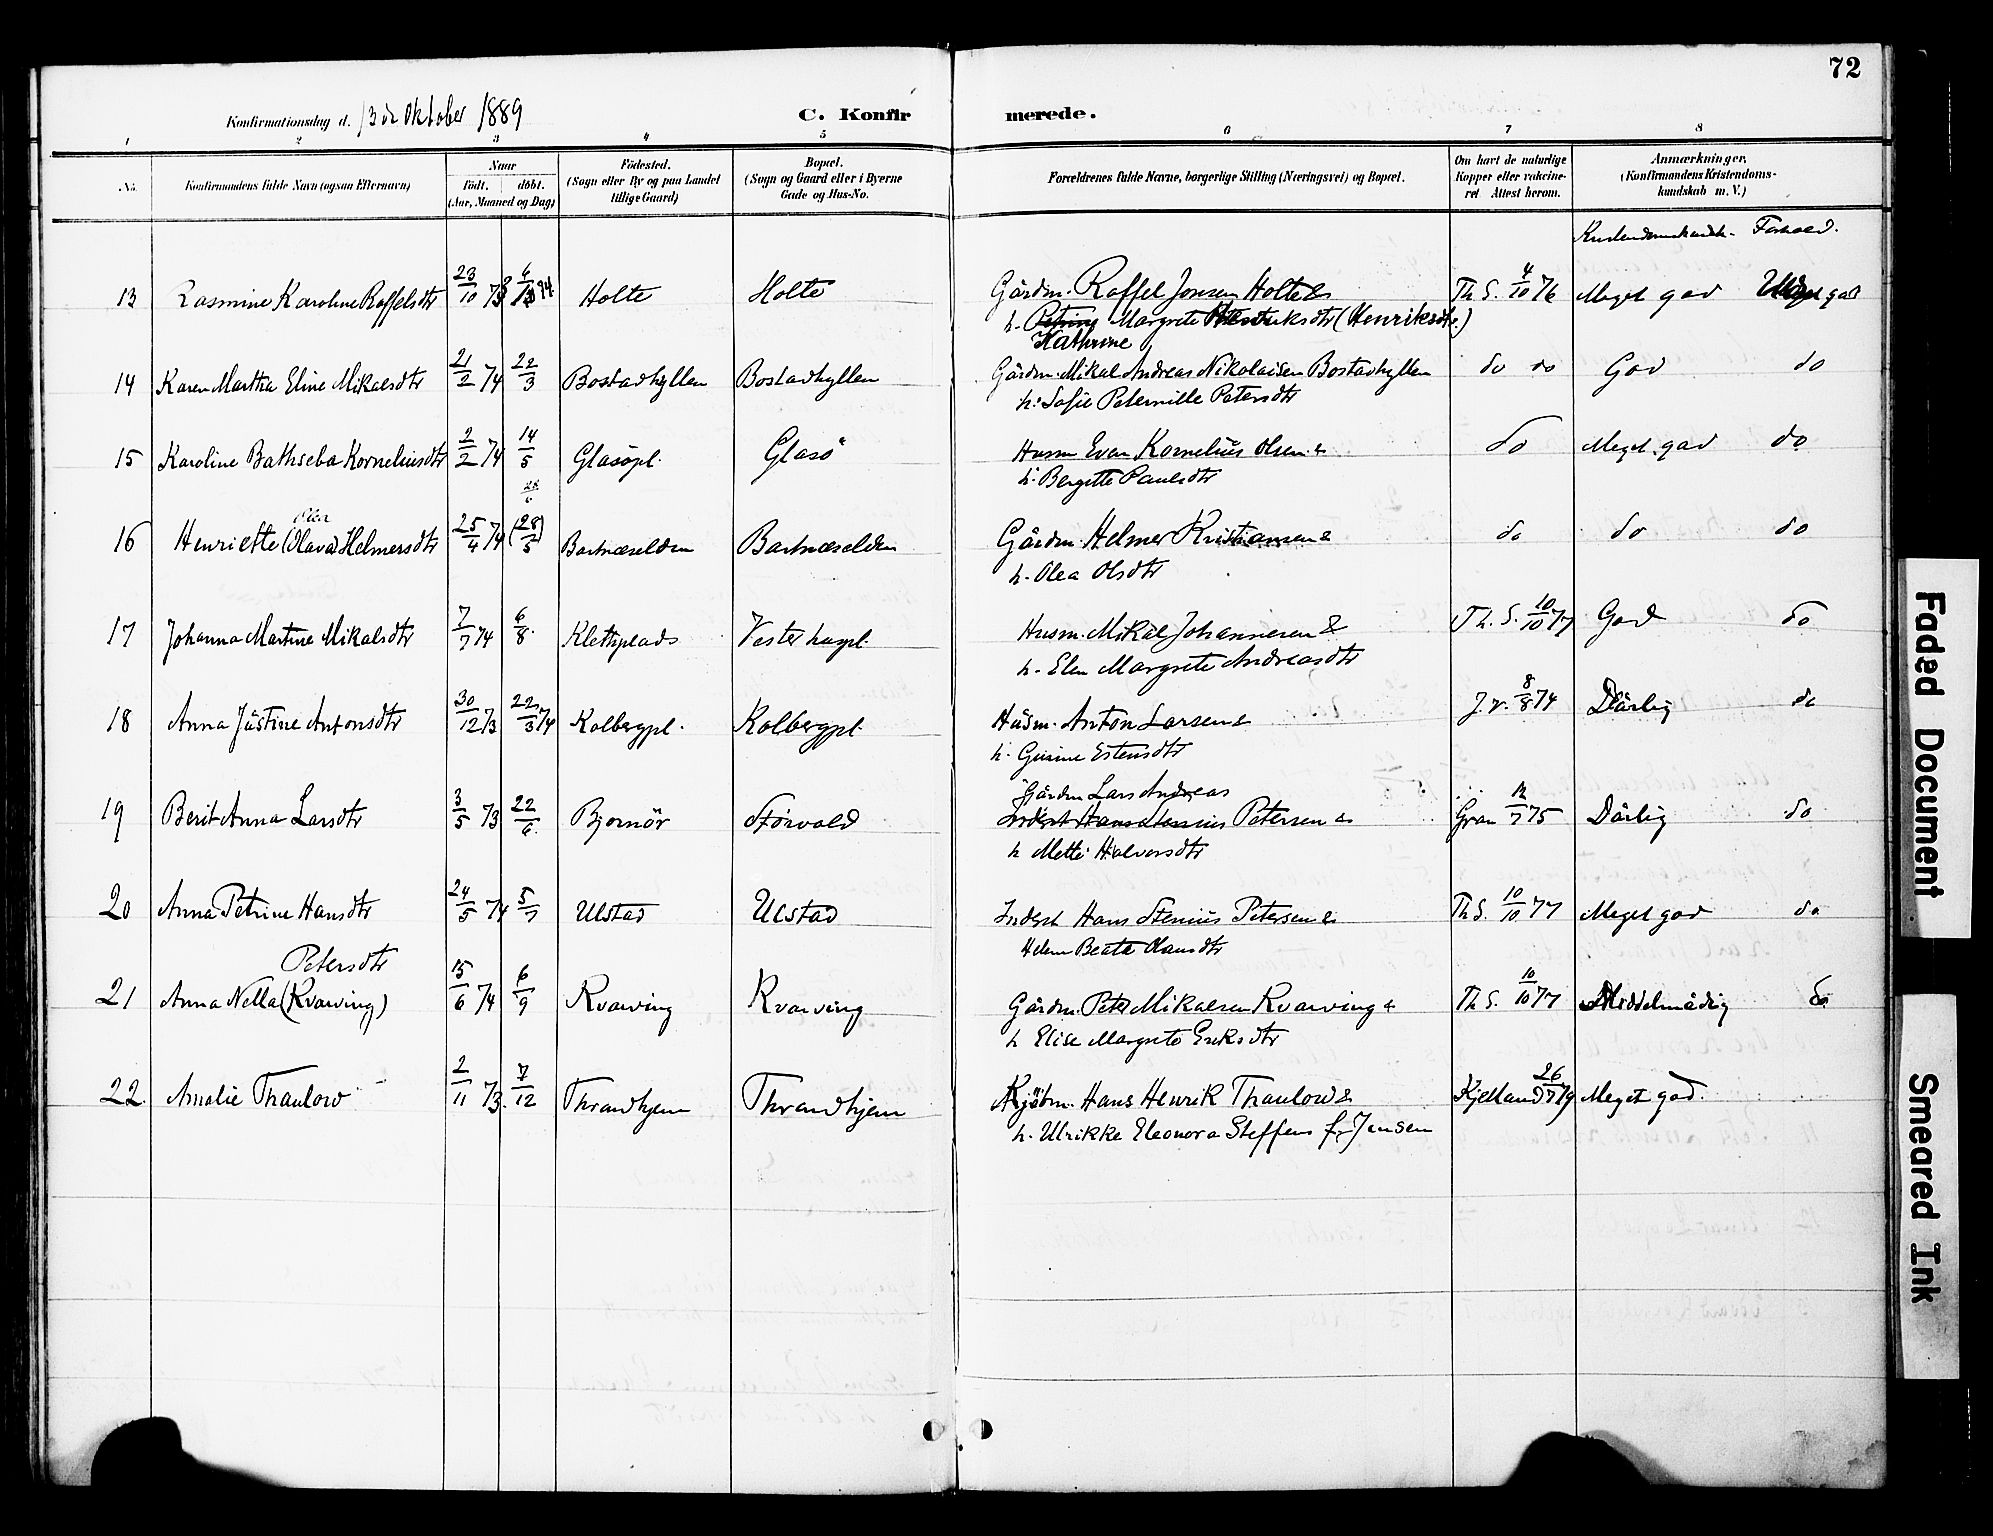 72
Konfirmationsdag d. 13de Oktober 1889
C. Konfirmerede.
1 2 3 4 5 6 7 8
No. Konfirmandens fulde Navn (ogsaa Efternavn) Naar født. døbt. (Aar, Maaned og Dag) Födested. (Sogn eller By og paa Landet tillige Gaard) Bopæl. (Sogn og Gaard eller i Byerne Gade og Hus-No. Forældrenes fulde Navne, borgerlige Stilling (Næringsvei) og Bopæl. Om havt de naturlige Kopper eller vakcineret Attest herom. Anmærkninger. (Konfirmandens Kristendomskundskab m. V.)
Kristendomskundsk. Forhold.
13 Rasmine Karoline Raffelsdtr 23/10 73 Holte Holte Gårdm. Raffel Jonsen Holte & Th S. 4/10 76 Meget god Meget god
h. Petrine Margrete Henriksdtr (Henriksdtr.)
Kathrine
14 Karen Martha Eline Mikalsdtr 21/2 74 22/3 Bostadhyllen Bostadhyllen Gårdm. Mikal Andreas Nikolaisen Bostadhyllen do do God do
h. Sofie Peternille Petersdtr
15 Karoline Bathseba Korneliusdtr 2/2 74 14/5 Glasöpl. Glasö Husm Even Kornelius Olsen & do Meget god do
h. Bergitte Paulsdtr
Olea
16 Henriette (Olava) Helmersdtr 25/4 74 (28/5) Bartnæselden Bartnæselden Gårdm. Helmer Kristiansen & do do do
h. Olea Olsdtr
17 Johanna Martine Mikalsdtr 7/7 74 6/8 Kletsplads Vesterhugpl. Husm. Mikal Johannesen & Th. S. 10/10 77 God do
h. Elen Margrete Andreasdtr
18 Anna Justine Antonsdtr 30/12 73 22/3 74 Kolbergpl. Kolbergpl. Husm. Anton Larsen & J. v. 8/8 74 Dårlig do
h. Gurine Estensdtr
Gårdm Lars Andreas
19 Berit Anna Larsdtr 3/5 73 22/6 Bjornör Storvold Inderst Hans Stenius Petersen & Gran 12/7 75 Dårlig do
h Mette Halvorsdtr
20 Anna Petrine Hansdtr 24/5 74 5/7 Ulstad Ulstad Inderst Hans Stenius Petersen & Th S. 10/10 77 Meget god do
Helen Beate Olausdtr
Petersdtr
21 Anna Nella (Kvarving) 15/6 74 6/9 Kvarving Kvarving Gårdm. Peter Mikalsen Kvarving & Th S. 10/10 77 Middelmådig do
h Elise Margrete Eriksdtr
22. Amalie Thaulow 2/11 73. 7/12 Throndhjem Throndhjem Kjöbm. Hans Henrik Thaulow & Kjelland 26/7 79 Meget god.
h. Ulrikke Eleonora Steffens f. Jensen
Faded Document
Smeared Ink